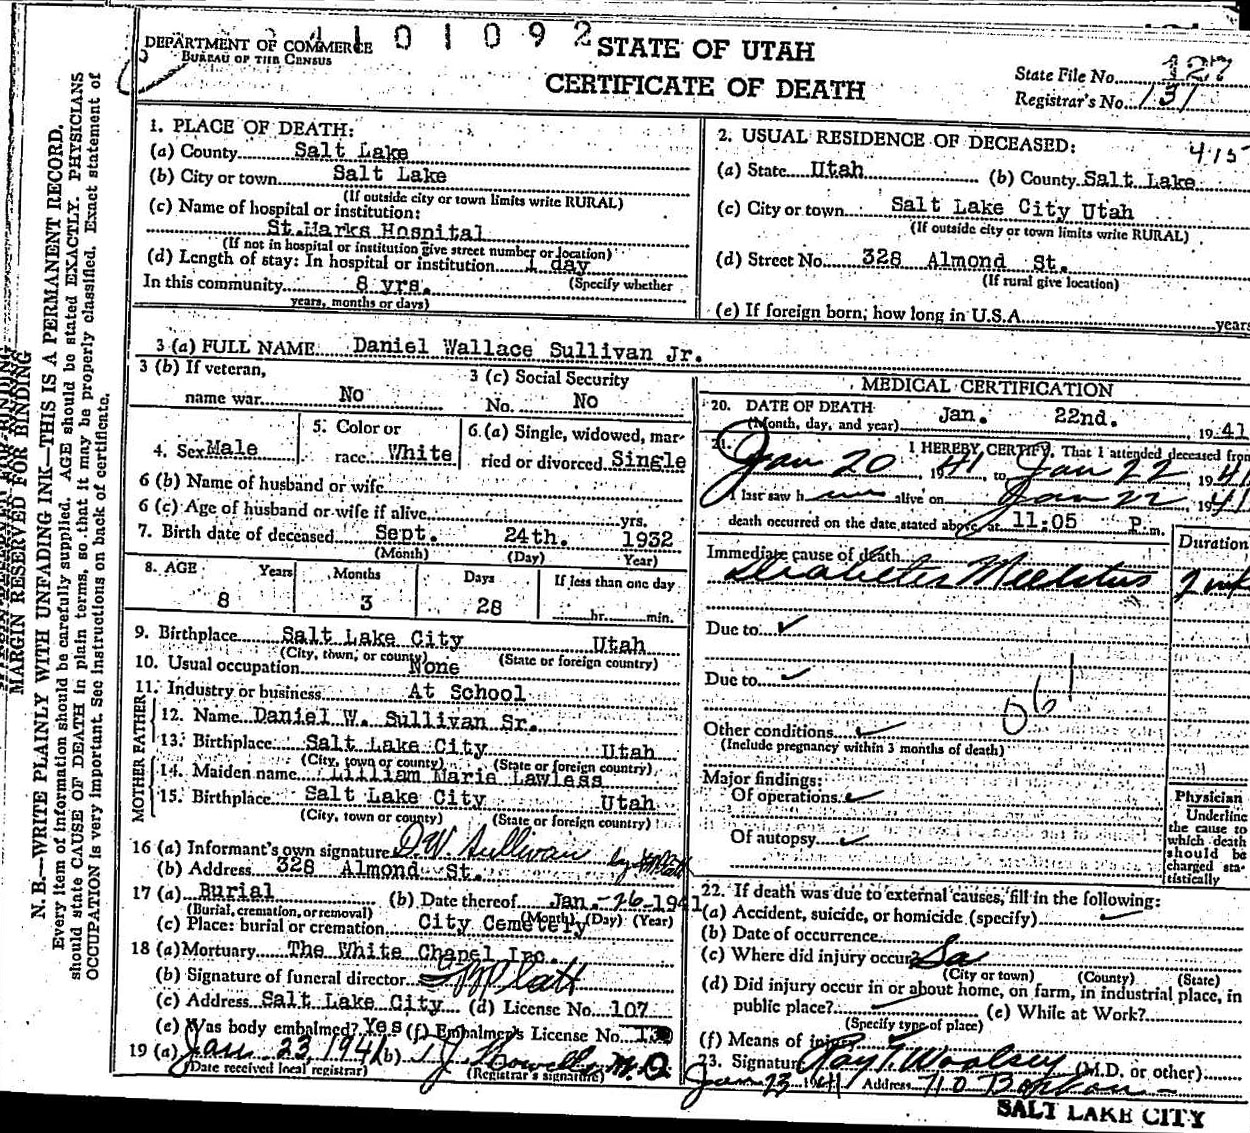 1 1 0 1 0 9 2
DEPARTMENT OF COMMERCE
BUREAU OF THE CENSUS
STATE OF UTAH
CERTIFICATE OF DEATH
State File No. 127
Registrar's No. 131
1. PLACE OF DEATH:
(a) County Salt Lake
(b) City or town Salt Lake
(If outside city or town limits write RURAL)
(c) Name of hospital or institution:
St.Marks Hospital
(If not in hospital or institution give street number or location)
(d) Length of stay: In hospital or institution 1 day
In this community 8 yrs. (Specify whether
years, months or days)
2. USUAL RESIDENCE OF DECEASED: 415
(a) State Utah (b) County Salt Lake
(c) City or town Salt Lake City Utah
(If outside city or town limits write RURAL)
(d) Street No. 328 Almond St.
(If rural give location)
(e) If foreign born, how long in U.S.A. years
3 (a) FULL NAME Daniel Wallace Sullivan Jr.
3 (b) If veteran,
name war No
3 (c) Social Security
No. No
4. Sex Male
5. Color or
race White
6. (a) Single, widowed, mar-
ried or divorced Single
6 (b) Name of husband or wife
6 (c) Age of husband or wife if alive yrs.
7. Birth date of deceased Sept. 24th. 1932
(Month) (Day) Year)
8. AGE Years Months Days If less than one day
8 3 28 hr. min.
9. Birthplace Salt Lake City Utah
(City, town, or county) (State or foreign country)
10. Usual occupation None
11. Industry or business At School
FATHER
12. Name Daniel W. Sullivan Sr.
13. Birthplace Salt Lake City Utah
(City, town or county) (State or foreign country)
MOTHER
14. Maiden name Lilliam Marie Lawless
15. Birthplace Salt Lake City Utah
(City, town or county) (State or foreign country)
16 (a) Informant's own signature D W Sullivan by
(b) Address 328 Almond St.
17 (a) Burial (b) Date thereof Jan. 26-1941
(Burial, cremation, or removal) (Month) (Day) (Year)
(c) Place: burial or cremation City Cemetery
18 (a) Mortuary The White Chapel Inc.
(b) Signature of funeral director
(c) Address Salt Lake City (d) License No. 107
(e) Was body embalmed? Yes (f) Embalmer's License No.
19 (a) Jan 23, 1941 (b) M.D.
(Date received local registrar) (Registrar's signature)
MEDICAL CERTIFICATION
20. DATE OF DEATH Jan. 22nd. 1941
(Month, day, and year)
21. I HEREBY CERTIFY, That I attended deceased from
Jan 20 1941, to Jan 22, 1941
I last saw him alive on Jan 22 1941
death occurred on the date stated above, at 11:05 P.m.
Duration
Immediate cause of death
Diabetes Mellitus 2 wk
Due to ✓
Due to ✓
061
Other conditions ✓
(Include pregnancy within 3 months of death)
Major findings:
Of operations ✓
Of autopsy ✓
Physician
Underline
the cause to
which death
should be
charged sta-
tistically
22. If death was due to external causes, fill in the following:
(a) Accident, suicide, or homicide (specify) ✓
(b) Date of occurrence
(c) Where did injury occur?
(City or town) (County) (State)
(d) Did injury occur in or about home, on farm, in industrial place, in
public place? (e) While at Work?
(Specify type of place)
(f) Means of injury
23. Signature Ray T. Woolsey (M.D. or other)
Jan 23 1941 Address 110
SALT LAKE CITY
MARGIN RESERVED FOR BINDING
N. B.—WRITE PLAINLY WITH UNFADING INK—THIS IS A PERMANENT RECORD.
Every item of information should be carefully supplied. AGE should be stated EXACTLY. PHYSICIANS
should state CAUSE OF DEATH in plain terms, so that it may be properly classified. Exact statement of
OCCUPATION is very important. See instructions on back of certificate.